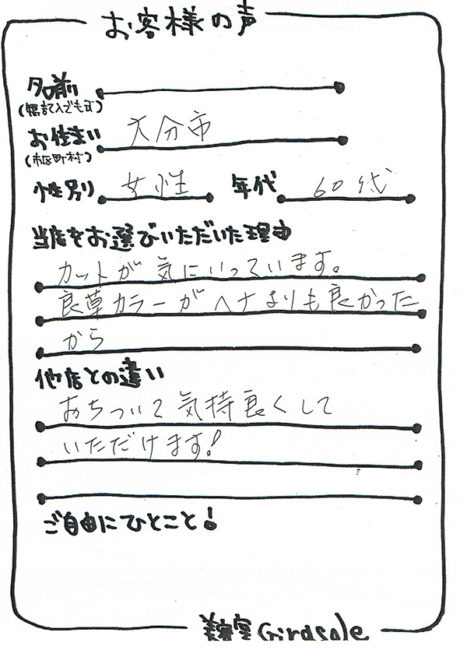 お客様の声
名前
(無記入でも可)
お住まい 大分市
(市区町村)
性別 女性 年代 60代
当店をお選びいただいた理由
カットが気にいっています。
良草カラーがヘナよりも良かった
から
他店との違い
おちついて気持良くして
いただけます!
ご自由にひとこと!
美容室Girasole